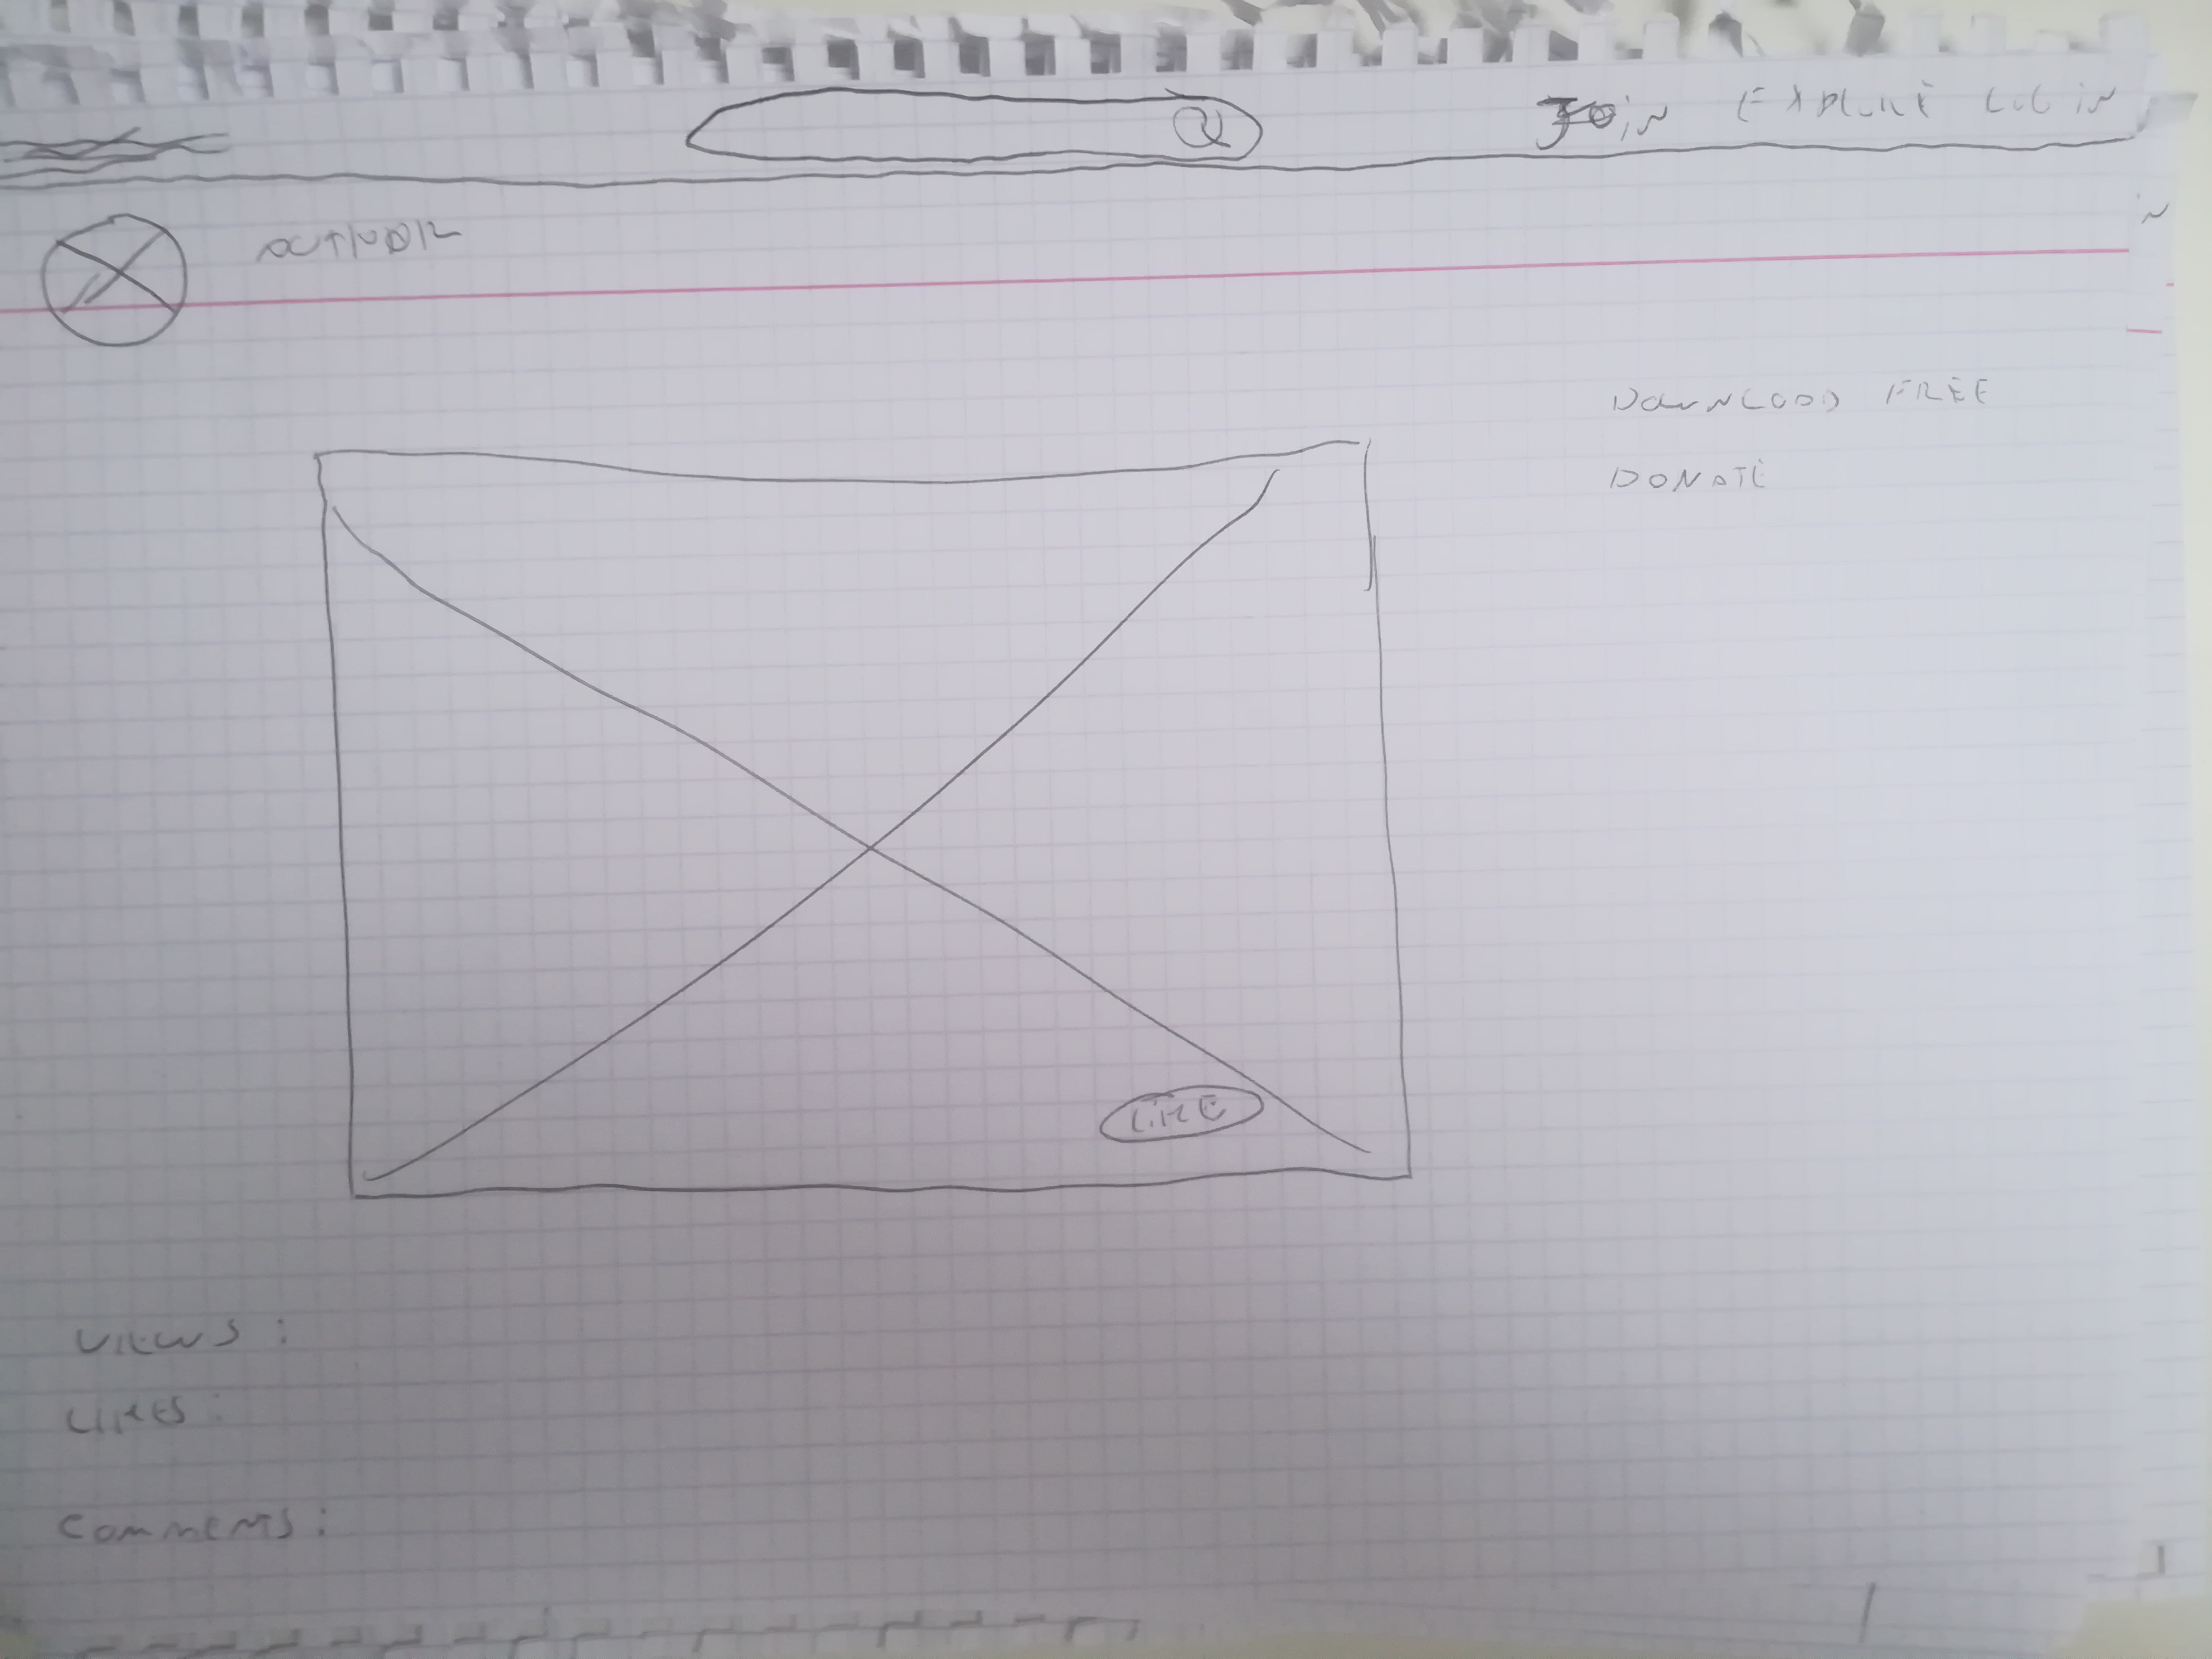 JOIN EXPLORE LOG IN
DOWNLOAD FREE
DONATE
LIKE
VIEWS:
LIKES:
COMMENTS: